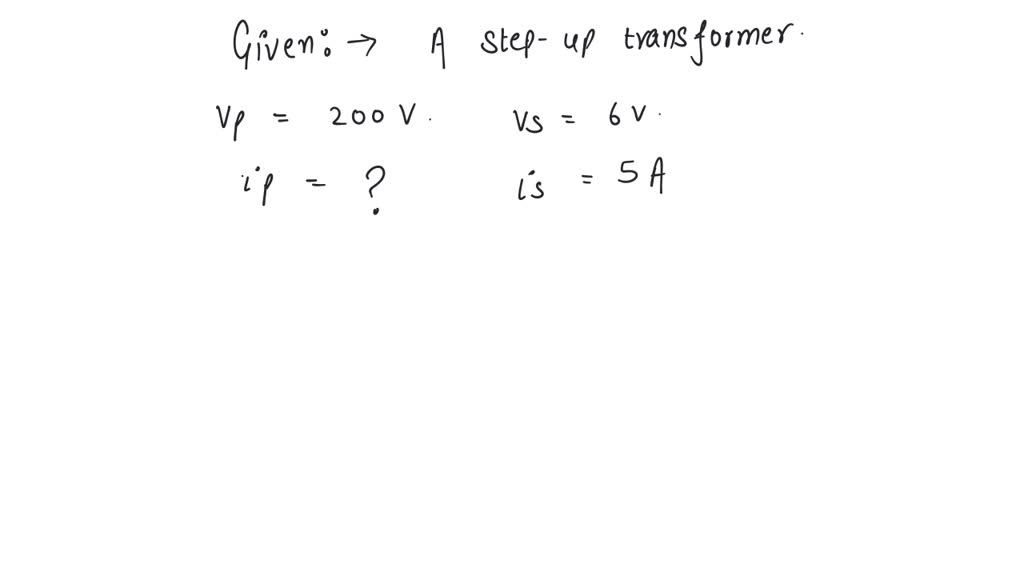 Given: → A step-up transformer.
Vp = 200 V. Vs = 6 V.
ip = ? is = 5 A